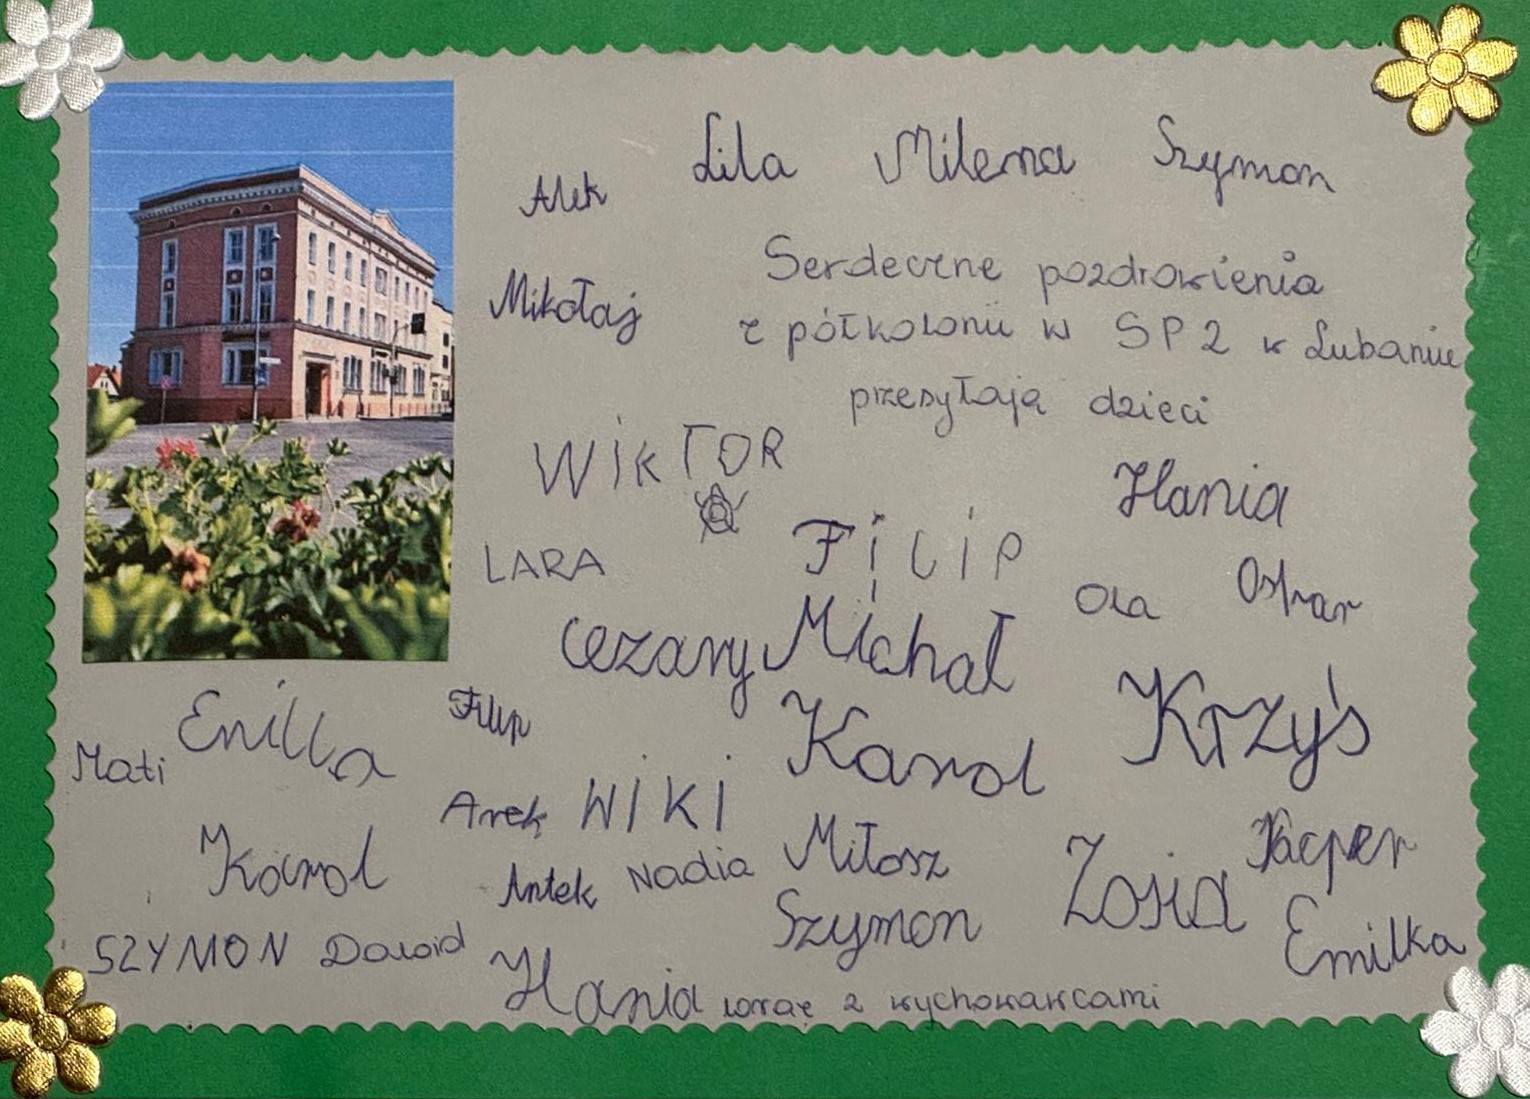 Alek Lila Milena Szymon
Mikołaj
Serdeczne pozdrowienia
z półkolonii w SP2 w Lubaniu
przesyłają dzieci
WiKTOR
Hania
LARA
FiLiP
Ola Oskar
Cezary Michał
Filip
Karol Krzyś
Mati Emilka
Arek WIKI
Karol
Antek Nadia Miłosz
Zosia Kacper
SZYMON Dawid Szymon Emilka
Hania wraz z wychowawcami